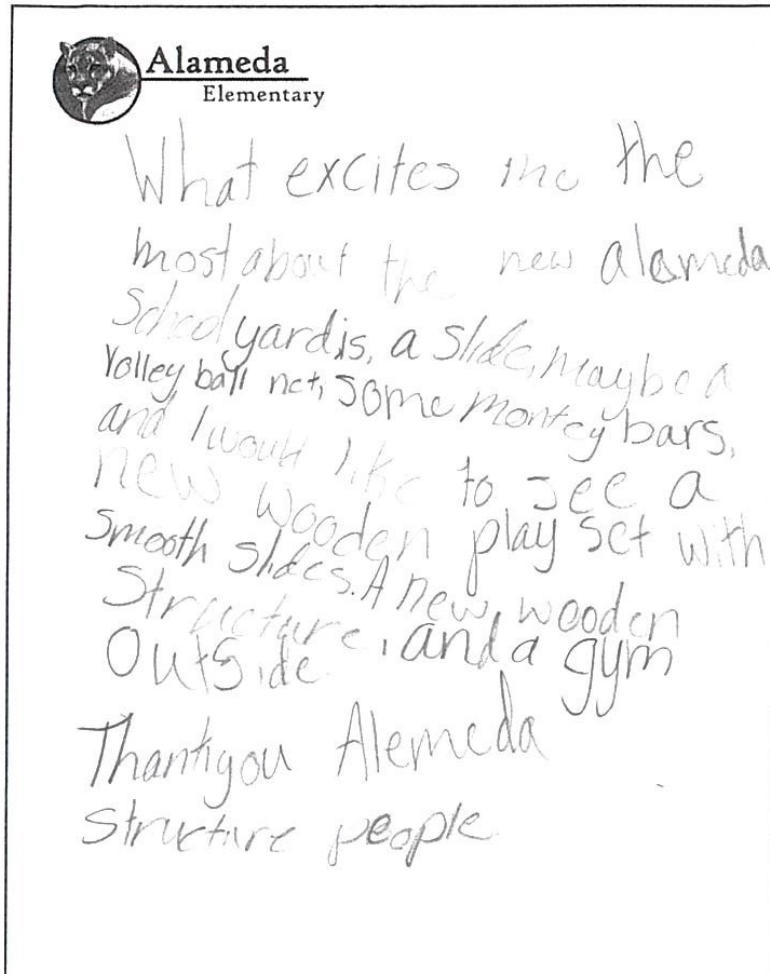 Alameda
Elementary
What excites me the
most about the new alameda
School yard is, a slide, maybe a
Volley ball net, some monkey bars,
and I would like to see a
new wooden play set with
smooth slides. A new, wooden
Structure, and a gym
Outside.
Thankyou Alemeda
Structure people